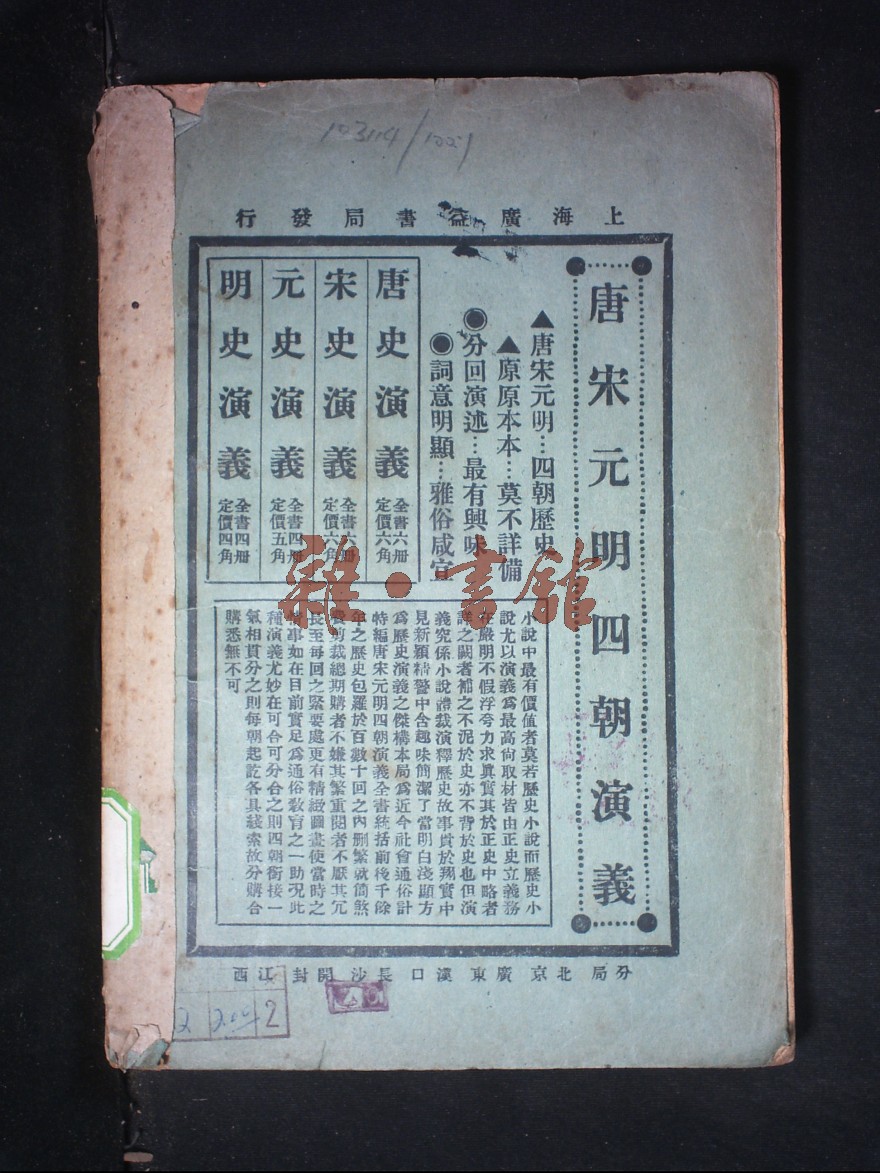 上海廣益書局發行
唐宋元明四朝演義
▲唐宋元明…四朝歷史
▲原原本本…莫不詳備
◉分回演述…最有興味
◉詞意明顯…雅俗咸宜
唐史演義 全書六冊 定價六角
宋史演義 全書六冊 定價六角
元史演義 全書四冊 定價五角
明史演義 全書四冊 定價四角
小說中最有價值者莫若歷史小說而歷史小
說尤以演義爲最高尙取材皆由正史立義務
在嚴明不假浮夸力求眞實其於正史中略者
詳之闕者補之不泥於史亦不背於史也但演
義究係小說體裁演釋歷史故事貴於翔實中
見新穎精警中含趣味簡潔了當明白淺顯方
爲歷史演義之傑構本局爲近今社會通俗計
特編唐宋元明四朝演義全書統括前後千餘
年之歷史包羅於百數十回之內刪繁就簡煞
費剪裁總期購者不嫌其繁重閱者不厭其冗
長至每回之緊要處更有精緻圖畫使當時之
情事如在目前實足爲通俗敎育之一助况此
種演義尤妙在可合可分合之則四朝銜接一
氣相貫分之則每朝起訖各具綫索故分購合
購悉無不可
分局 北京 廣東 漢口 長沙 開封 江西
雜·書館
2